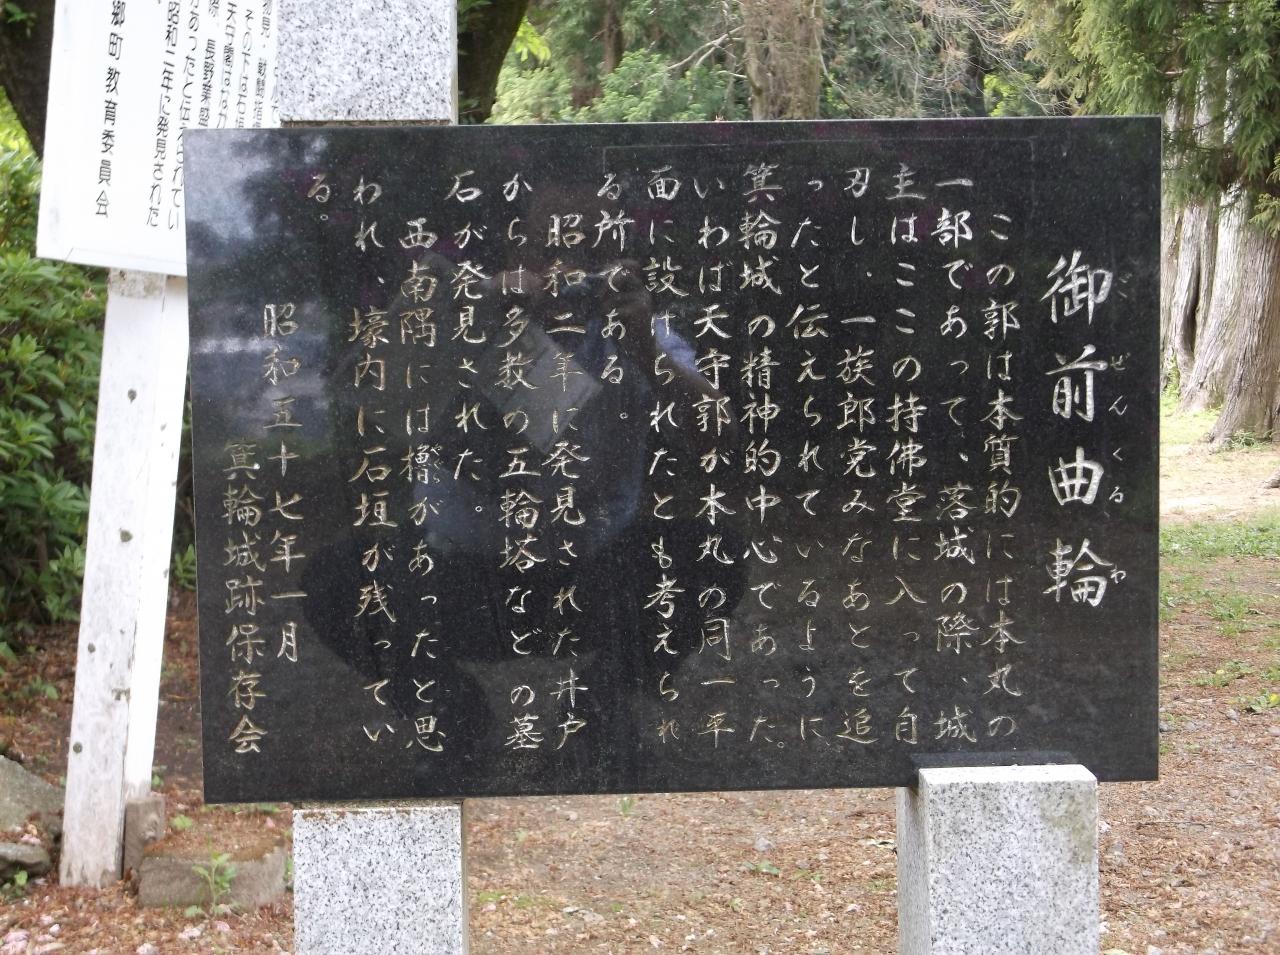 御前曲輪
ごぜんくるわ
この郭は本質的には本丸の
一部であって、落城の際、城
主はここの持佛堂に入って自
刃し、一族郎党みなあとを追
ったと伝えられているように
箕輪城の精神的中心であった。
いわば天守郭が本丸の同一平
面に設けられたとも考えられ
る所である。
昭和二年に発見された井戸
からは多数の五輪塔などの墓
石が発見された。
西南隅には櫓があったと思
やぐら
われ、壕内に石垣が残ってい
る。
昭和五十七年一月
箕輪城跡保存会
その下は石垣
天守閣は
長野業盛
があったと伝えられてい
昭和二年に発見された
郷町教育委員会